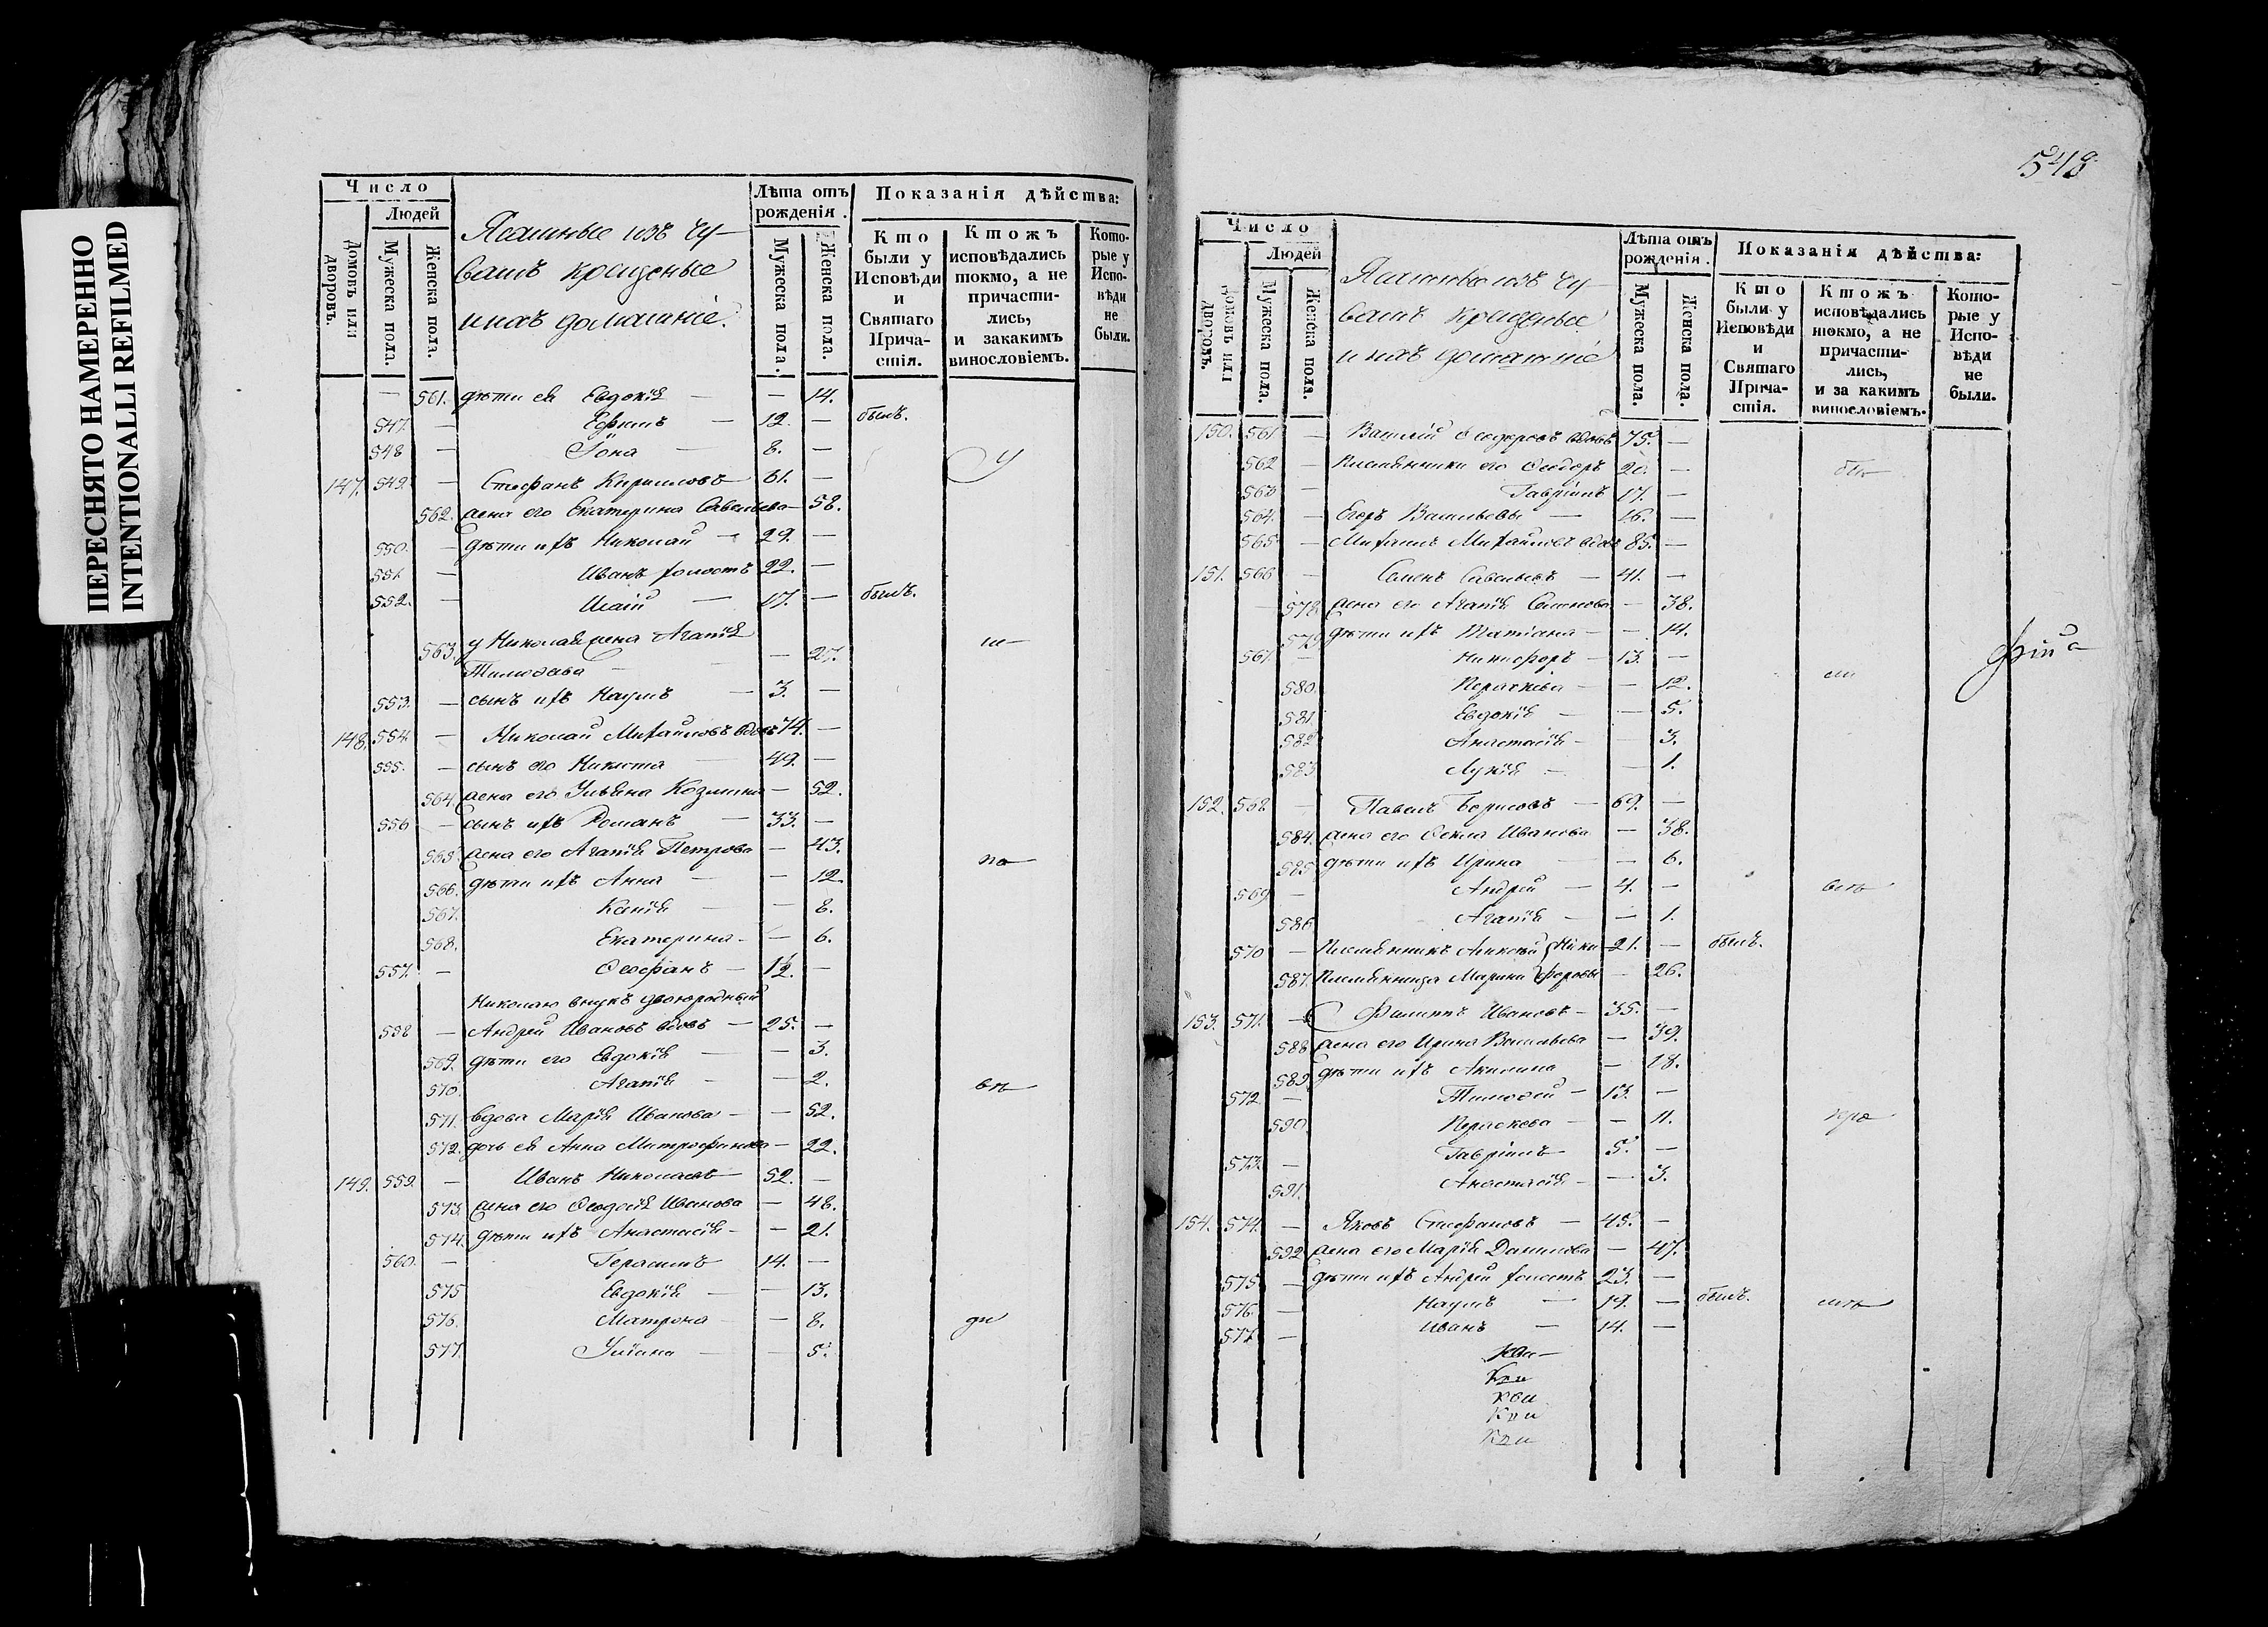 ПЕРЕСНЯТО НАМЕРЕННО
INTENTIONALLI REFILMED
Число
Домовъ или дворовъ.
Людей
Мужеска пола.
Женска пола.
Ясашные изъ чу-
вашъ крещеные
и ихъ домашніе.
Лѣта отъ рожденія.
Мужеска пола.
Женска пола.
Показанія дѣйства:
Кто были у Исповѣди и Святаго Причастія.
Ктожъ исповѣдались токмо, а не причастились, и закакимъ винословіемъ.
Которые у Исповѣди не были.
— 561. дѣти ея Евдокія — — 14.
547. — Ефимъ — 12. — былъ.
548 — Іона — 8. —
147. 549. — Стефанъ Кириловъ 61. —
562. жена его Екатерина Савельева — 58.
550. — дѣти ихъ Николай — 29. —
551. — Иванъ холостъ 22. —
552. — Илій — 17. — былъ.
563. у Николая жена Агапія
Тимофеева — — 27.
553. — сынъ ихъ Наумъ — 3. —
148. 554. — Николай Михайловъ вдовъ 74. —
555. — сынъ его Никита — 49. —
564. жена его Ульяна Козмина — 52.
556 — сынъ ихъ Романъ — 33. —
565. жена его Агапія Петрова — 43.
566. дѣти ихъ Анна — — 12. по
567. Ксенія — — 8.
568. Екатерина — — 6.
557. — Ѳеофанъ — 1/2. —
Николаю внукъ двоюродный
558 — Андрей Ивановъ вдовъ — 25. —
569. дѣти его Евдокія — — 3.
570. Агапія — — 2.
571. вдова Марія Иванова — — 52.
572. дочь ея Анна Митрофанова — 22.
149. 559. — Иванъ Николаевъ — 52. —
573. жена его Ѳеодосія Иванова — 48.
574. дѣти ихъ Анастасія — — 21.
560. — Герасимъ 14. —
575 Евдокія — — 13.
576. Матрона — — 8.
577. Уліана — — 5.
Число
Домовъ или дворовъ.
Людей
Мужеска пола.
Женска пола.
Ясашные изъ чу-
вашъ крещеные
и ихъ домашніе
Лѣта отъ рожденія.
Мужеска пола.
Женска пола.
Показанія дѣйства:
Кто были у Исповѣди и Святаго Причастія.
Ктожъ исповѣдались токмо, а не причастились, и за какимъ винословіемъ.
Которые у Исповѣди не были.
150. 561 — Василій Ѳеодоровъ вдовъ 75. —
562 — Племянники его Ѳеодоръ 20. —
563 — Гавріилъ 17. —
564. — Егоръ Васильевы — 16. —
565 — Михаилъ Михайловъ вдовъ 85. —
151. 566 — Семенъ Савельевъ — 41. —
— 578. жена его Агапія Семенова — 38.
579 дѣти ихъ Татіана — — 14.
567. — Никифоръ — 13. —
580. Параскева — — 12.
581. Евдокія — — 5.
582 Анастасія — — 3.
583 Лукія — — 1.
152. 568. — Павелъ Борисовъ — 69. —
584. жена его Ѳекла Иванова — 38.
585 дѣти ихъ Ирина — — 6.
569 — Андрей — 4. —
586 Агапія — — 1.
570 — Племянникъ Алексѣй Ники- 21. — былъ.
587. Племянница Марина форовы — 26.
153. 571. — Филиппъ Ивановъ — 35. —
588 жена его Ирина Васильева — 39.
589. дѣти ихъ Акилина — 18.
572 — Тимофей — 13. —
590. Параскева — — 11.
573. — Гавріилъ — 5. —
591. Анастасія — — 3.
154. 574. — Яковъ Стефановъ — 45. —
592 жена его Марія Данилова — 47.
575 — дѣти ихъ Андрей холостъ 23. —
576. — Наумъ — 19. — былъ.
577. — Иванъ — 14. —